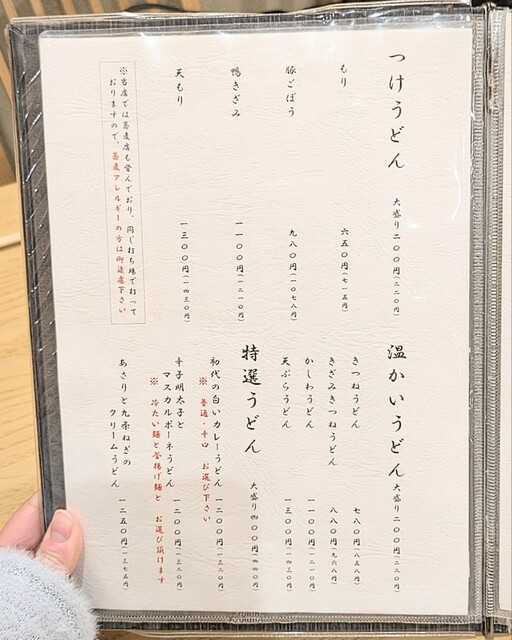 つけうどん 大盛り二〇〇円(二二〇円)
もり 六五〇円(七一五円)
豚ごぼう 九八〇円(一〇七八円)
鴨きざみ 一一〇〇円(一二一〇円)
天もり 一三〇〇円(一四三〇円)
※当店では蕎麦店も営んでおり、同じ打ち場で打って
おりますので、蕎麦アレルギーの方は御遠慮下さい
温かいうどん 大盛り二〇〇円(二二〇円)
きつねうどん 七八〇円(八五八円)
きざみきつねうどん 八八〇円(九六八円)
かしわうどん 一一〇〇円(一二一〇円)
天ぷらうどん 一三〇〇円(一四三〇円)
特選うどん 大盛り四〇〇円(四四〇円)
初代の白いカレーうどん 一二〇〇円(一三二〇円)
※ 普通・辛口 お選び下さい
辛子明太子と
マスカルポーネうどん 一二〇〇円(一三二〇円)
※ 冷たい麺と釜揚げ麺と お選び頂けます
あさりと九条ねぎの
クリームうどん 一二五〇円(一三七五円)